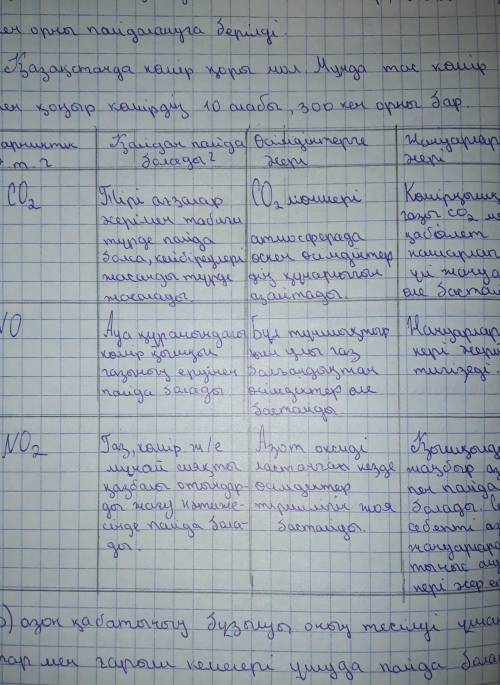 кен орны пайдалануға берілді.
Қазақстанда көмір қоры мол. Мұнда тас көмір
мен қоңыр көмірдің 10 алабы, 300 кен орны бар.
Қайдан пайда болады?
Өсімдіктерге әсері
Жануарлар әсері
CO2
Тірі ағзалар
әсерімен табиғи
түрде пайда
бола, кейбіреулері
жасанды түрде
жасалады.
CO2 мөлшері
атмосферада
өскен өсімдіктер
дің құнарлығын
азайтады.
Көмірқышқыл
газы CO2
қабілет
нашарлап
өле бастай
NO
Ауа құрамындағы
көмір қышқыл
газының еруінен
пайда болады.
Бұл тұншықтыр
ғыш улы газ
болғандықтан
өсімдіктер өле
бастайды.
Жануарлар
кері әсері
тигізеді.
NO2
Газ, көмір ж/е
мұнай сияқты
қазбалы отындар-
ды жағу нәтиже-
сінде пайда бола-
ды.
Азот оксиді
ластанған кезде
өсімдіктер
тіршілігін жоя
бастайды.
Қышқылд
жаңбыр
пен пайда
болады.
себепті
жануарлар
тыныс
кері әсер
б) озон қабатының бұзылуы оның тесілуі
мен ғарыш кемелері ұшуда пайда бола